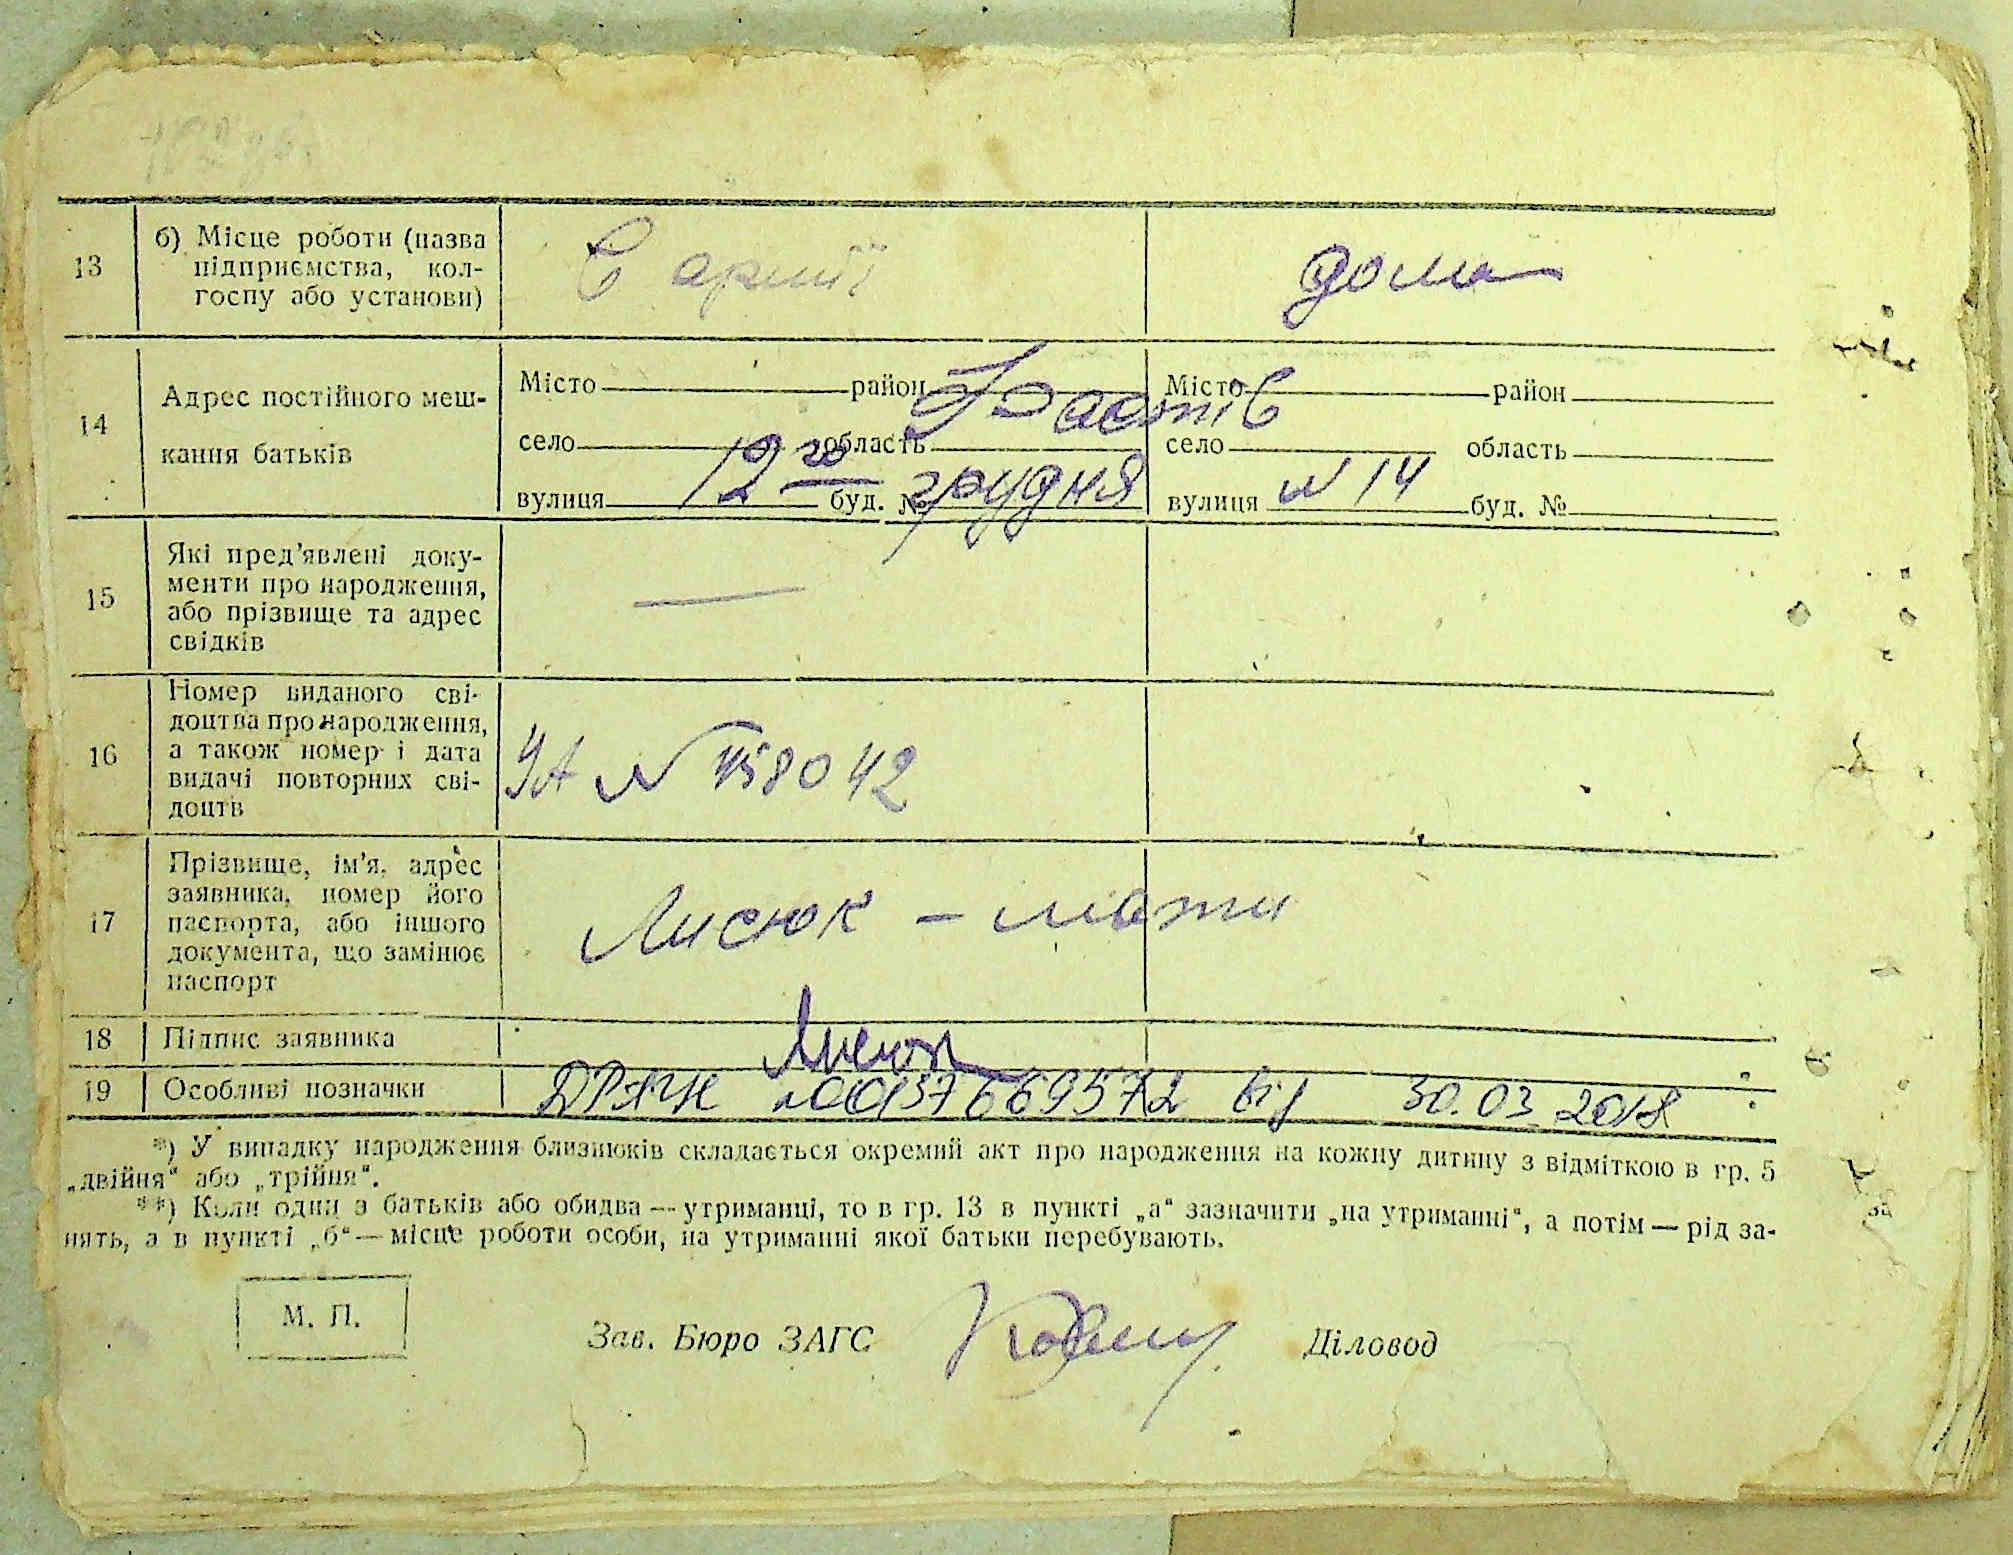 13
б) Місце роботи (назва
підприємства, кол-
госпу або установи)
в армії
дома
14
Адрес постійного меш-
кання батьків
Місто район Місто район
Фастів
село область село область
вулиця 12го буд. № грудня вулиця № 14 буд. №
15
Які пред'явлені доку-
менти про народження,
або прізвище та адрес
свідків
—
16
Номер виданого сві-
доцтва про народження,
а також номер і дата
видачі повторних сві-
доцтв
УА № 458042
17
Прізвище, ім'я, адрес
заявника, номер його
паспорта, або іншого
документа, що замінює
паспорт
Лисюк - мати
18 Підпис заявника
Лисюк
19 Особливі позначки
ДРАЦС 00137669572 від 30.03.2018
*) У випадку народження близнюків складається окремий акт про народження на кожну дитину з відміткою в гр. 5
„двійня“ або „трійня“.
**) Коли один з батьків або обидва — утриманці, то в гр. 13 в пункті „а“ зазначити „на утриманні“, а потім — рід за-
нять, а в пункті „б“ — місце роботи особи, на утриманні якої батьки перебувають.
М. П.
Зав. Бюро ЗАГС
Діловод